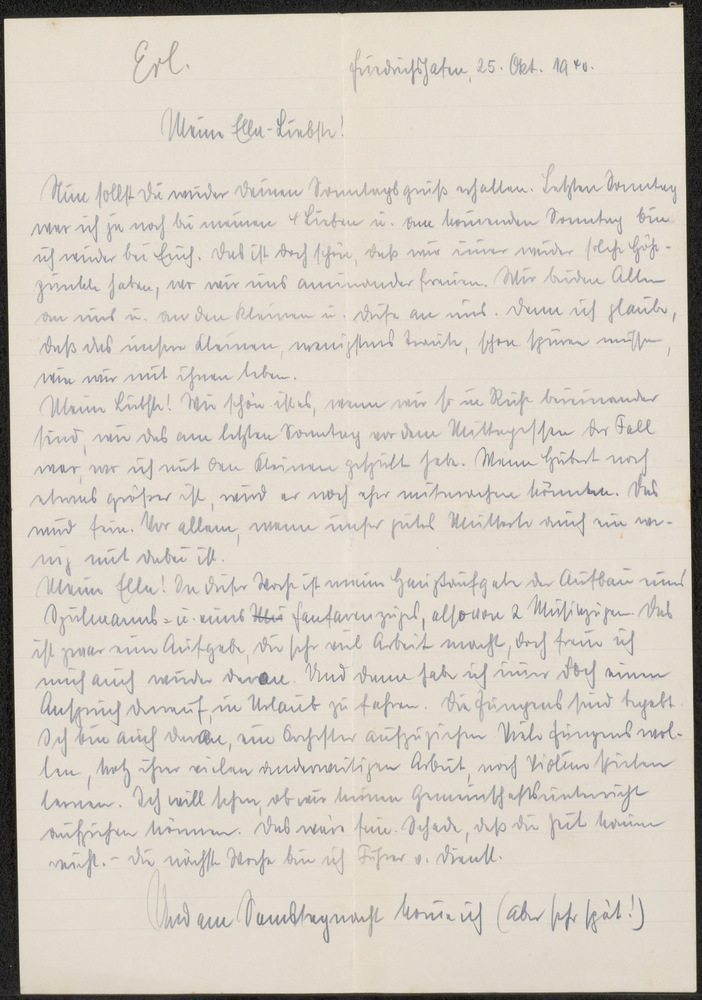 Erl.
Friedrichshafen, 25. Okt. 1940.
Meine Ella-Liebste!
Nun sollst Du wieder Deinen Sonntagsgruß erhalten. Letzten Sonntag
war ich ja noch bei meinen 4 Lieben u. am kommenden Sonntag bin
ich wieder bei Euch. Das ist doch schön, daß wir immer wieder solche Höhe-
punkte haben, wo wir uns aneinander freuen. Wir beiden Alten
an uns u. an den Kleinen u. diese an uns. Denn ich glaube,
daß das unsere Kleinen, wenigstens Traute, schon spüren müssen,
wie wir mit ihnen leben.
Meine Liebste! Wie schön ist es, wenn wir so in Ruhe beieinander
sind, wie das am letzten Sonntag vor dem Mittagessen der Fall
war, wo ich mit den Kleinen gespielt habe. Wenn Hubert noch
etwas größer ist, wird er noch eher mitmachen können. Das
wird fein. Vor allem, wenn unser gutes Mutterle auch ein we-
nig mit dabei ist.
Meine Ella! In dieser Woche ist meine Hauptaufgabe der Aufbau eines
Spielmanns- u. eines Fanfarenzuges, also von 2 Musikzügen. Das
ist zwar eine Aufgabe, die sehr viel Arbeit macht, doch freue ich
mich auch wieder daran. Und dann habe ich immer doch einen
Anspruch darauf, in Urlaub zu fahren. Die Jungens sind begabt.
Ich bin auch daran, ein Orchester aufzuziehen. Viele Jungens wol-
len, trotz ihrer vielen anderweitigen Arbeit, noch Violine spielen
lernen. Ich will sehen, ob wir keinen Gemeinschaftsunterricht
aufziehen können. Das wäre fein. Schade, daß die Zeit kaum
reicht. - Die nächste Woche bin ich Führer v. Dienst.
Und am Samstagnacht komme ich (aber sehr spät!)